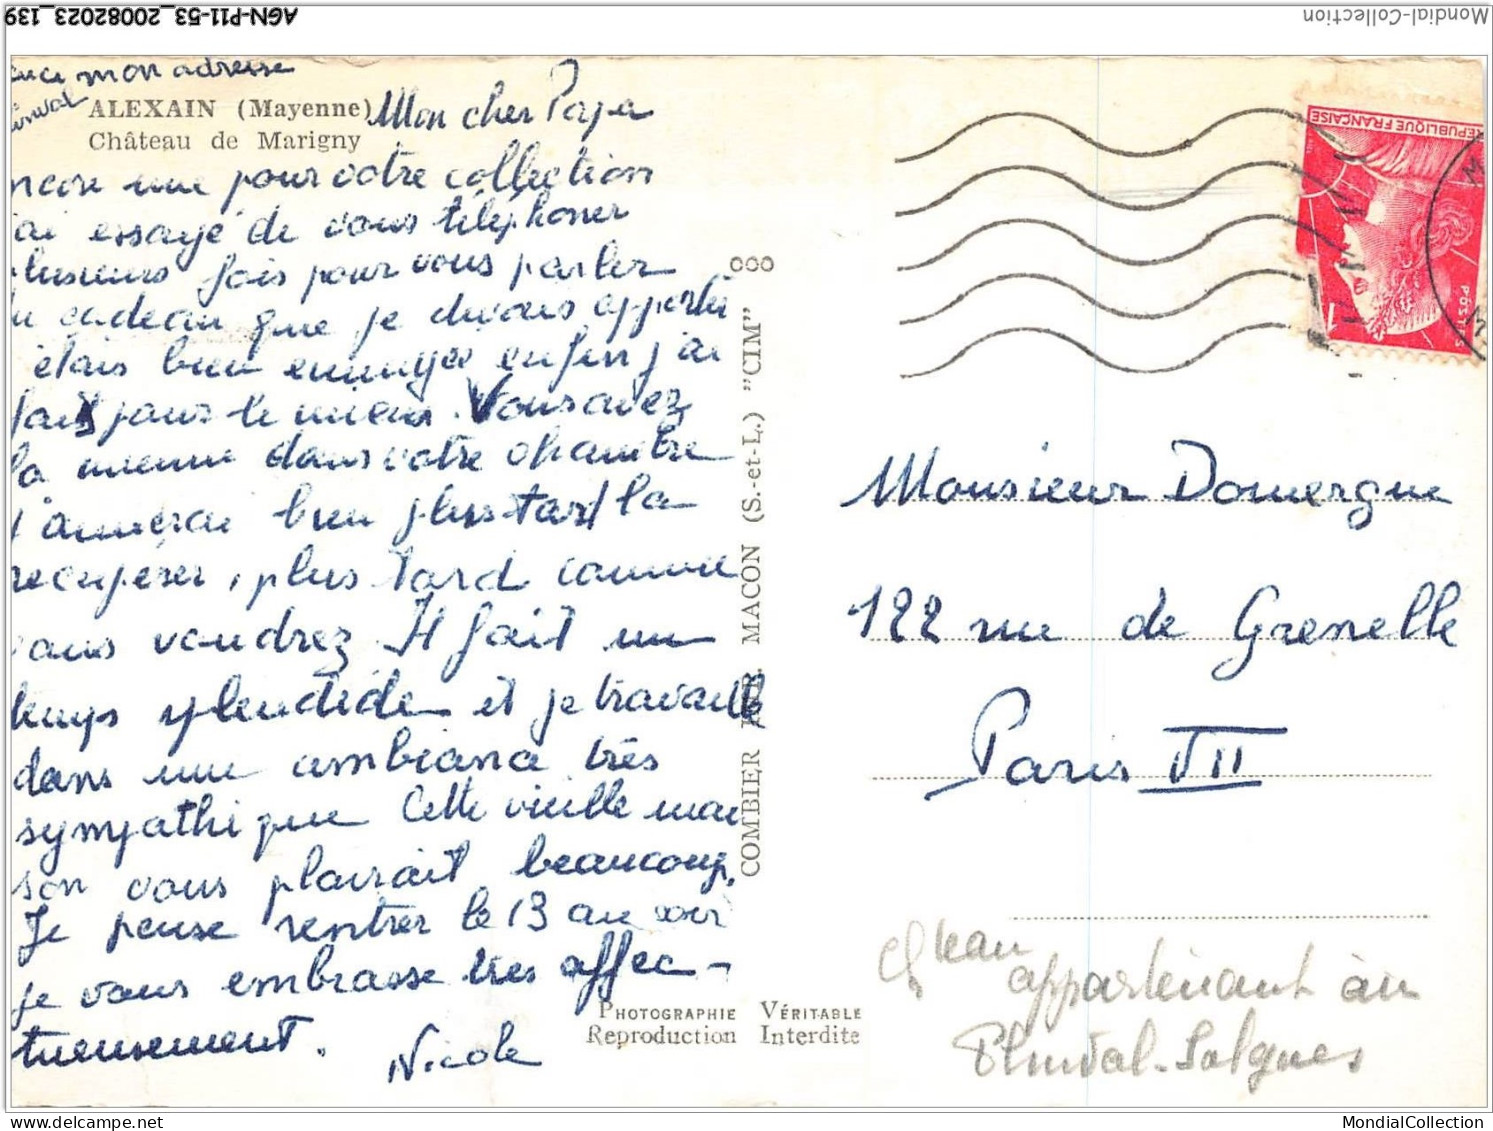 AGN-P11-53_20082023_139
Mondial-Collection
mon adresse
ALEXAIN (Mayenne)
Château de Marigny
Mon cher Papa
ncore une pour votre collection
ai essayé de vous téléphoner
plusieurs fois pour vous parler
du cadeau que je devais apporter
étais bien ennuyée enfin j'ai
fait pour le mieux. Vous avez
la mienne dans votre chambre
J'aimerai bien plus tard la
recupérer, plus tard comme
vous voudrez Il fait un
temps splendide et je travaille
dans une ambiance très
sympathique Cette vieille mai
son vous plairait beaucoup.
Je pense rentrer le 13 au soir
je vous embrasse très affec-
tueusement.
Nicole
COMBIER IMP. MACON (S.-et-L.) "CIM"
PHOTOGRAPHIE VÉRITABLE
Reproduction Interdite
REPUBLIQUE FRANÇAISE
POSTES
Monsieur Domergue
122 rue de Grenelle
Paris VII
Chteau
appartenant au
Plinval-Salgues
MondialCollection